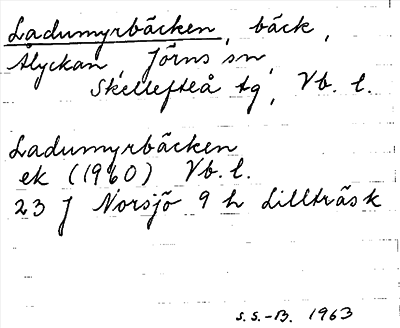 Ladumyrbäcken, bäck,
Ålyckan, Jörns sn,
Skellefteå tg, Vb. l.
Ladumyrbäcken
ek (1960) Vb. l.
23 J Norsjö 9 h Lillträsk
S.S.-B. 1963